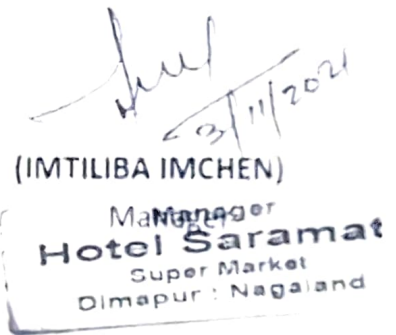 3/11/2021
(IMTILIBA IMCHEN)
Manager
Manager
Hotel Saramat
Super Market
Dimapur : Nagaland